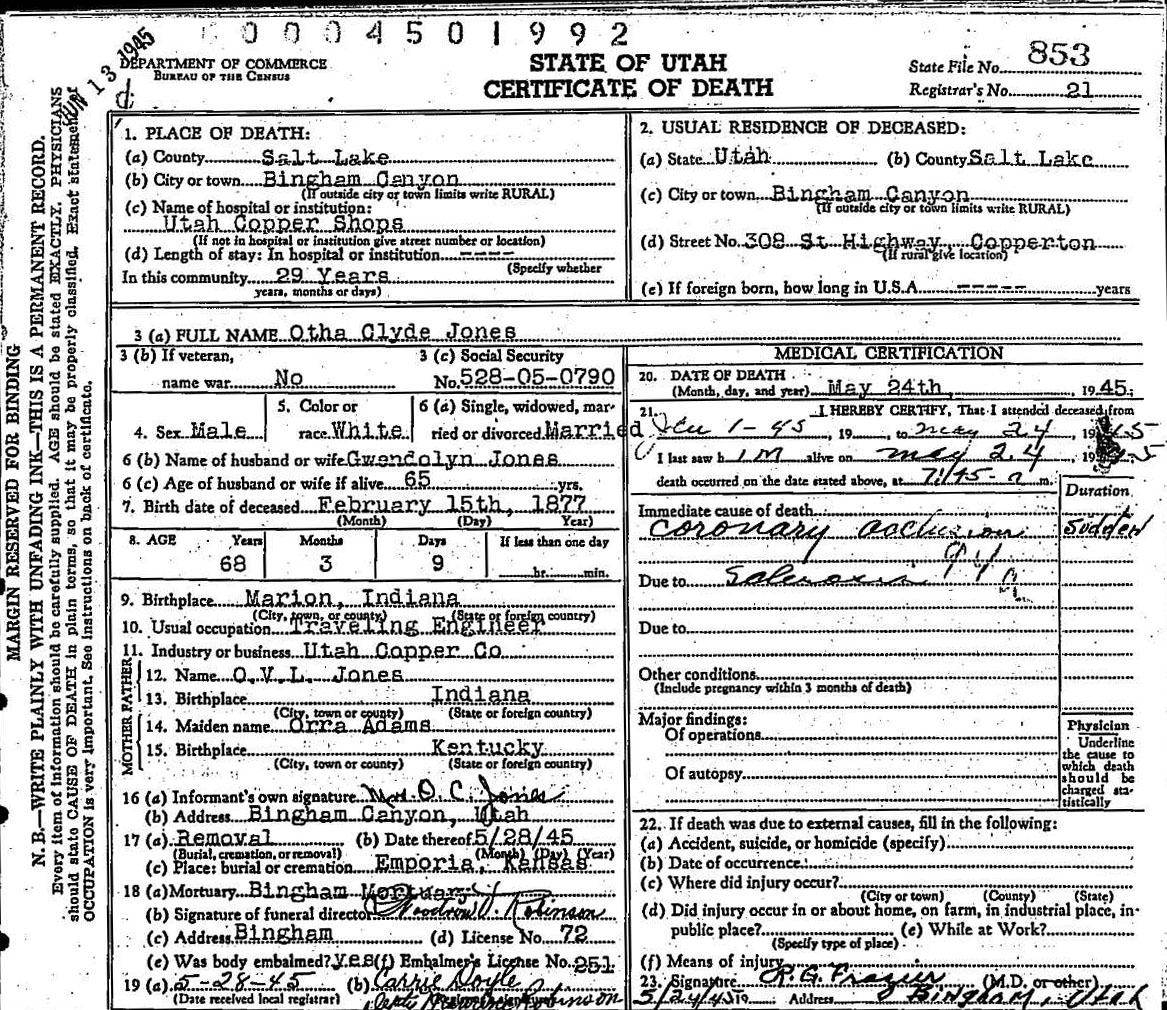 0004501992
JUN 13 1945
DEPARTMENT OF COMMERCE
BUREAU OF THE CENSUS
d.
STATE OF UTAH
CERTIFICATE OF DEATH
State File No. 853
Registrar's No. 21
MARGIN RESERVED FOR BINDING
N. B.—WRITE PLAINLY WITH UNFADING INK—THIS IS A PERMANENT RECORD.
Every item of information should be carefully supplied. AGE should be stated EXACTLY. PHYSICIANS
should state CAUSE OF DEATH in plain terms, so that it may be properly classified. Exact statement of
OCCUPATION is very important. See instructions on back of certificate.
1. PLACE OF DEATH:
(a) County Salt Lake
(b) City or town Bingham Canyon
(If outside city or town limits write RURAL)
(c) Name of hospital or institution:
Utah Copper Shops
(If not in hospital or institution give street number or location)
(d) Length of stay: In hospital or institution ----
(Specify whether
In this community 29 Years
years, months or days)
2. USUAL RESIDENCE OF DECEASED:
(a) State Utah (b) County Salt Lake
(c) City or town Bingham Canyon
(If outside city or town limits write RURAL)
(d) Street No. 308 St Highway, Copperton
(If rural give location)
(e) If foreign born, how long in U.S.A. ----- years
3 (a) FULL NAME Otha Clyde Jones
3 (b) If veteran,
name war No
3 (c) Social Security
No. 528-05-0790
4. Sex Male
5. Color or
race White
6 (a) Single, widowed, mar-
ried or divorced Married
6 (b) Name of husband or wife Gwendolyn Jones
6 (c) Age of husband or wife if alive 65 yrs.
7. Birth date of deceased February 15th, 1877
(Month) (Day) Year)
8. AGE Years Months Days If less than one day
68 3 9 hr. min.
9. Birthplace Marion, Indiana
(City, town, or county) (State or foreign country)
10. Usual occupation Traveling Engineer
11. Industry or business Utah Copper Co
FATHER
12. Name O.V.L. Jones
13. Birthplace Indiana
(City, town or county) (State or foreign country)
MOTHER
14. Maiden name Orra Adams
15. Birthplace Kentucky
(City, town or county) (State or foreign country)
16 (a) Informant's own signature Mrs. O. C. Jones
(b) Address Bingham Canyon, Utah
17 (a) Removal (b) Date thereof 5/28/45
(Burial, cremation, or removal) (Month) (Day) (Year)
(c) Place: burial or cremation Emporia, Kansas
18 (a) Mortuary Bingham Mortuary
(b) Signature of funeral director Woodrow V. Robinson
(c) Address Bingham (d) License No. 72
(e) Was body embalmed? yes (f) Embalmer's License No. 251
19 (a) 5-28-45 (b) Carrie Doyle
(Date received local registrar)
MEDICAL CERTIFICATION
20. DATE OF DEATH
(Month, day, and year) May 24th, 1945.
21. I HEREBY CERTIFY, That I attended deceased from
1-45, 19 , to May 24 1945
I last saw h im alive on May 24 19 45
death occurred on the date stated above, at 7:45-a m.
Duration
Immediate cause of death
Coronary occlusion Sudden
94a
Due to
Due to
Other conditions
(Include pregnancy within 3 months of death)
Major findings:
Of operations
Of autopsy
Physician
Underline
the cause to
which death
should be
charged sta-
tistically
22. If death was due to external causes, fill in the following:
(a) Accident, suicide, or homicide (specify)
(b) Date of occurrence
(c) Where did injury occur?
(City or town) (County) (State)
(d) Did injury occur in or about home, on farm, in industrial place, in-
public place? (e) While at Work?
(Specify type of place)
(f) Means of injury
23. Signature R. G. Frazier (M.D. or other)
5/24/45 19 Address Bingham, Utah